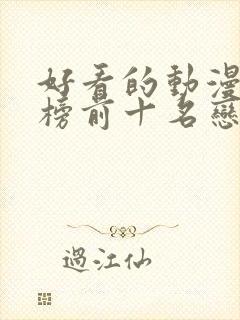 好看的動漫
榜前十名戀
過江仙